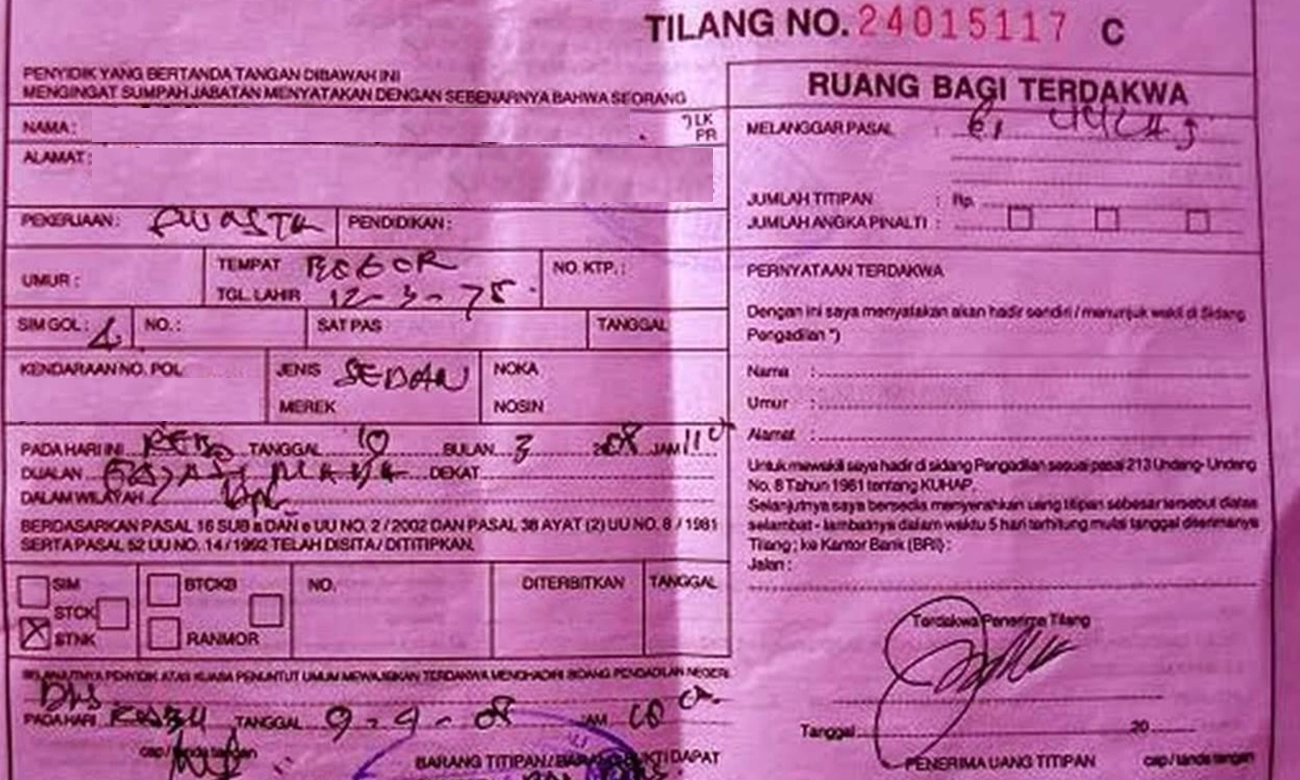 TILANG NO. 24015117 C
PENYIDIK YANG BERTANDA TANGAN DIBAWAH INI
MENGINGAT SUMPAH JABATAN MENYATAKAN DENGAN SEBENARNYA BAHWA SEORANG
NAMA : LK
PR
ALAMAT :
PEKERJAAN : SWASTA PENDIDIKAN :
UMUR : TEMPAT BOGOR NO. KTP. :
TGL. LAHIR 12-3-75
SIM GOL : A NO. : SAT PAS TANGGAL
KENDARAAN NO. POL JENIS SEDAN NOKA
MEREK NOSIN
PADA HARI INI TANGGAL BULAN 3 JAM
DIJALAN DEKAT
DALAM WILAYAH
BERDASARKAN PASAL 16 SUB a DAN e UU NO. 2 / 2002 DAN PASAL 38 AYAT (2) UU NO. 8 / 1981
SERTA PASAL 52 UU NO. 14 / 1992 TELAH DISITA / DITITIPKAN.
SIM BTCKB NO. DITERBITKAN TANGGAL
STCK
STNK RANMOR
SELANJUTNYA PENYIDIK ATAS KUASA PENUNTUT UMUM MEWAJIBKAN TERDAKWA MENGHADIRI SIDANG PENGADILAN NEGERI
PADA HARI TANGGAL JAM
cap / tanda tangan
BARANG TITIPAN / DAPAT
RUANG BAGI TERDAKWA
MELANGGAR PASAL :
JUMLAH TITIPAN : Rp.
JUMLAH ANGKA PINALTI :
PERNYATAAN TERDAKWA
Dengan ini saya menyatakan akan hadir sendiri / menunjuk wakil di Sidang
Pengadilan *)
Nama :
Umur :
Alamat :
Untuk mewakili saya hadir di sidang Pengadilan sesuai pasal 213 Undang- Undang
No. 8 Tahun 1981 tentang KUHAP.
Selanjutnya saya bersedia menyerahkan uang titipan sebesar tersebut diatas
selambat - lambatnya dalam waktu 5 hari terhitung mulai tanggal diterimanya
Tilang ; ke Kantor Bank (BRI) :
Jalan :
Terdakwa Penerima Tilang
Tanggal 20
PENERIMA UANG TITIPAN cap / tanda tangan